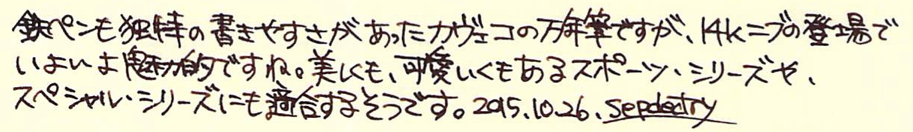 鉄ペンも独特の書きやすさがあったカヴェコの万年筆ですが、14kニブの登場で
いよいよ魅力的ですね。美しくも、可愛いくもあるスポーツ・シリーズや、
スペシャル・シリーズにも適合するそうです。2015.10.26.